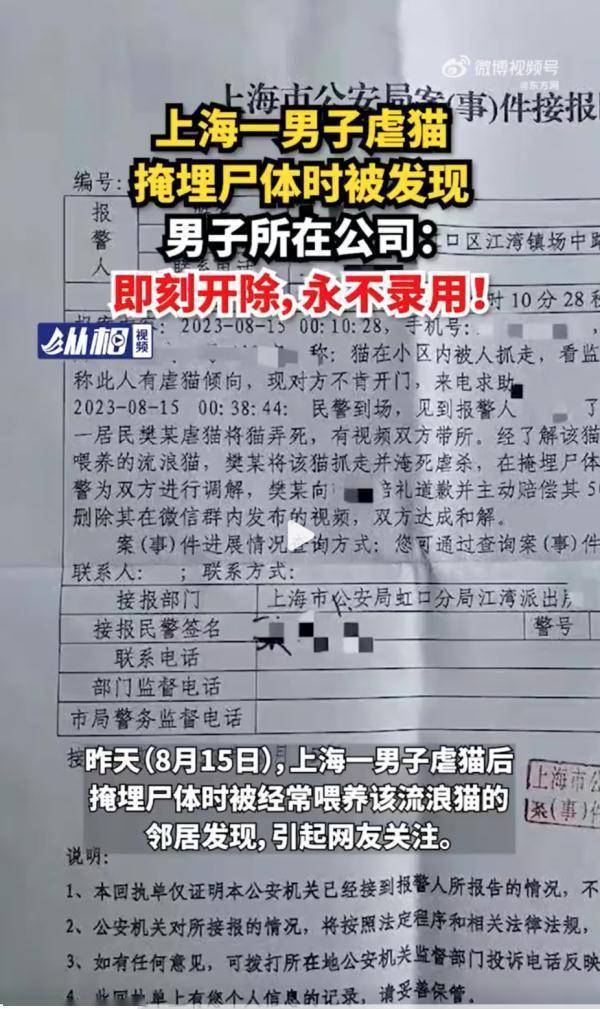 微博视频号
@东方网
上海市公安局案(事)件接报
上海一男子虐猫
掩埋尸体时被发现
男子所在公司：
即刻开除，永不录用！
编号：
报
警
人
口区江湾镇场中路
联系电话
时10分28秒
纵相视频
2023-08-15 00:10:28, 手机号：
称：猫在小区内被人抓走，看监
称此人有虐猫倾向，现对方不肯开门，来电求助
2023-08-15 00:38:44: 民警到场，见到报警人 了
一居民樊某虐猫将猫弄死，有视频双方带所。经了解该猫
喂养的流浪猫，樊某将该猫抓走并淹死虐杀，在掩埋尸体
警为双方进行调解，樊某向 赔礼道歉并主动赔偿其50
删除其在微信群内发布的视频，双方达成和解。
案(事)件进展情况查询方式：您可通过查询案(事)件
联系人： ；联系方式：
接报部门 上海市公安局虹口分局江湾派出所
接报民警签名 警号
联系电话
部门监督电话
市局警务监督电话
接
昨天（8月15日），上海一男子虐猫后
掩埋尸体时被经常喂养该流浪猫的
邻居发现，引起网友关注。
上海市公
案(事)件
说明：
1、本回执单仅证明本公安机关已经接到报警人所报告的情况，不
2、公安机关对所接报的情况，将按照法定程序和相关法律法规，
3、如有任何意见，可拨打所在地公安机关监督部门投诉电话反映
4、此回执单上有您个人信息的记录，请妥善保管。